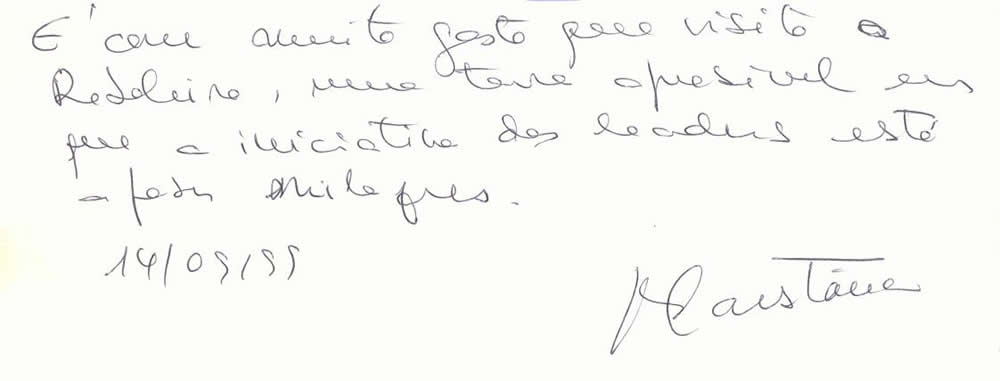 É com muito gosto que visito a
Redoleiro, uma terra aprasível em
que a iniciativa dos leaders está
a fazer milagres.
14/09/99